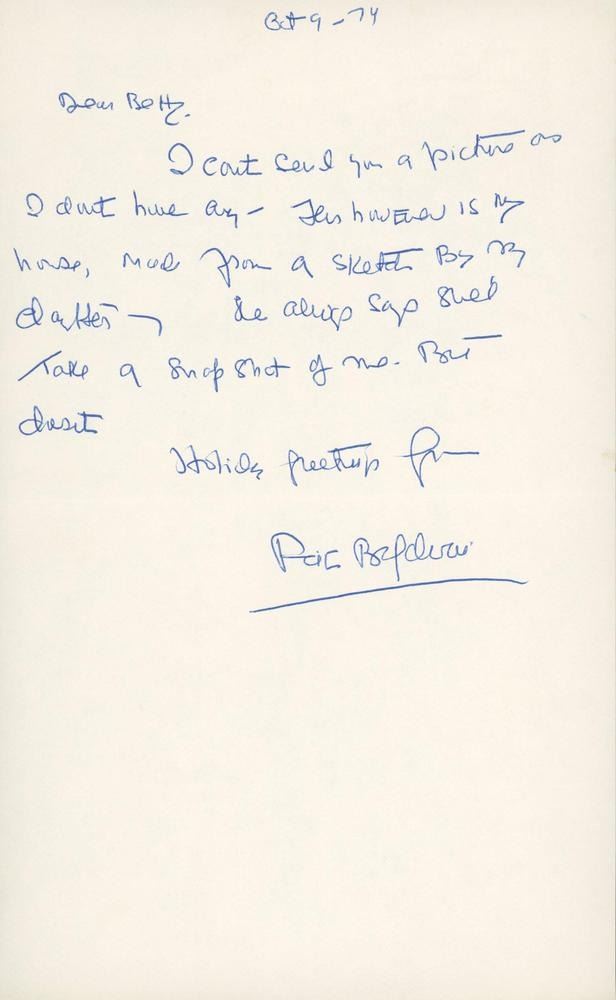 Oct 9 - 74
Dear Betty.
I cant send you a picture as
I dont have any - This however is my
house, made from a sketch By my
daughter - She always says shed
Take a snap shot of me. But
doesnt
Holiday greetings from